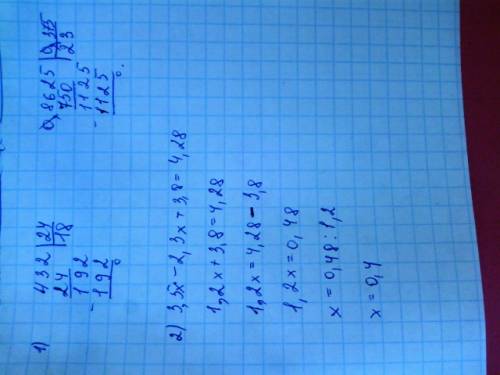 1)
432 | 24
24 | 18
- 192
192
0
0,8625 | 0,375
750 | 23
- 1125
1125
0.
2) 3,5x - 2,3x + 3,8 = 4,28
1,2x + 3,8 = 4,28
1,2x = 4,28 - 3,8
1,2x = 0,48
x = 0,48 : 1,2
x = 0,4